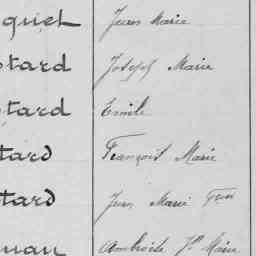 quet Jean Marie
tard Joseph Marie
tard Emile
tard François Marie
tard Jean Marie
uan Ambroise Jh Marie